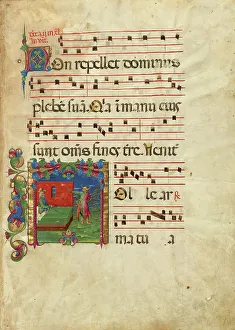 on repellet dominus
plebē suā. Q̄a ī manu eius
sunt om̄s fines t̄re. Venite
Ol le ar
ma tu a